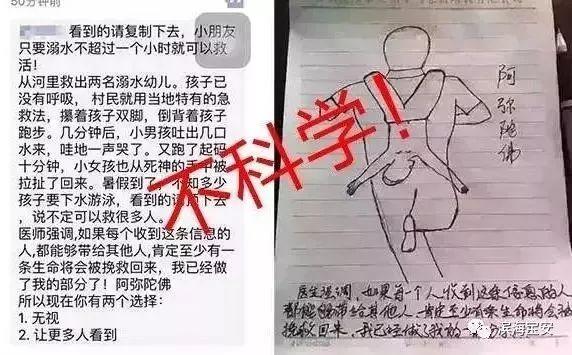 50分钟前
看到的请复制下去，小朋友
只要溺水不超过一个小时就可以救
活！
从河里救出两名溺水幼儿。孩子已
没有呼吸，村民就用当地特有的急
救法，攥着孩子双脚，倒背着孩子
跑步。几分钟后，小男孩吐出几口
水来，哇地一声哭了。又跑了起码
十分钟，小女孩也从死神的手中被
拉扯了回来。暑假到了，不知多少
孩子要下水游泳，看到的请顶下去
，说不定可以救很多人。
医师强调,如果每个收到这条信息的人,
都能够带给其他人,肯定至少有一
条生命将会被挽救回来，我已经做
了我的部分了！阿弥陀佛
所以现在你有两个选择：
1. 无视
2. 让更多人看到
不科学！
阿弥陀佛
医生强调，如果每一个人收到这条信息的人
都能够带给其他人，肯定至少有一条生命将会被
挽救回来，我已经做了我的
滨海定安